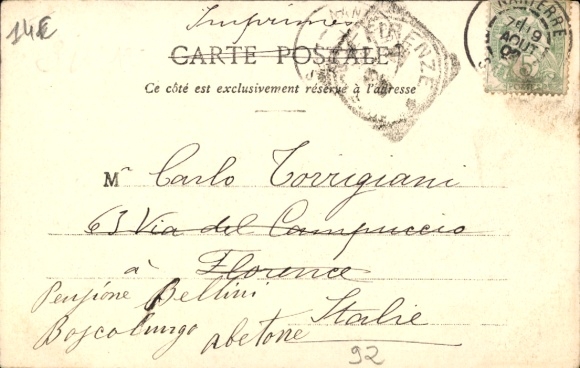 14E
Imprimés
NANTERRE
7E 19
AOUT
5
FIRENZE
CARTE POSTALE
Ce côté est exclusivement réservé à l'adresse
M Carlo Torrigiani
63 Via del Campuccio
à Florence
Pensione Bellini
Italie
Boscolungo abetone
92